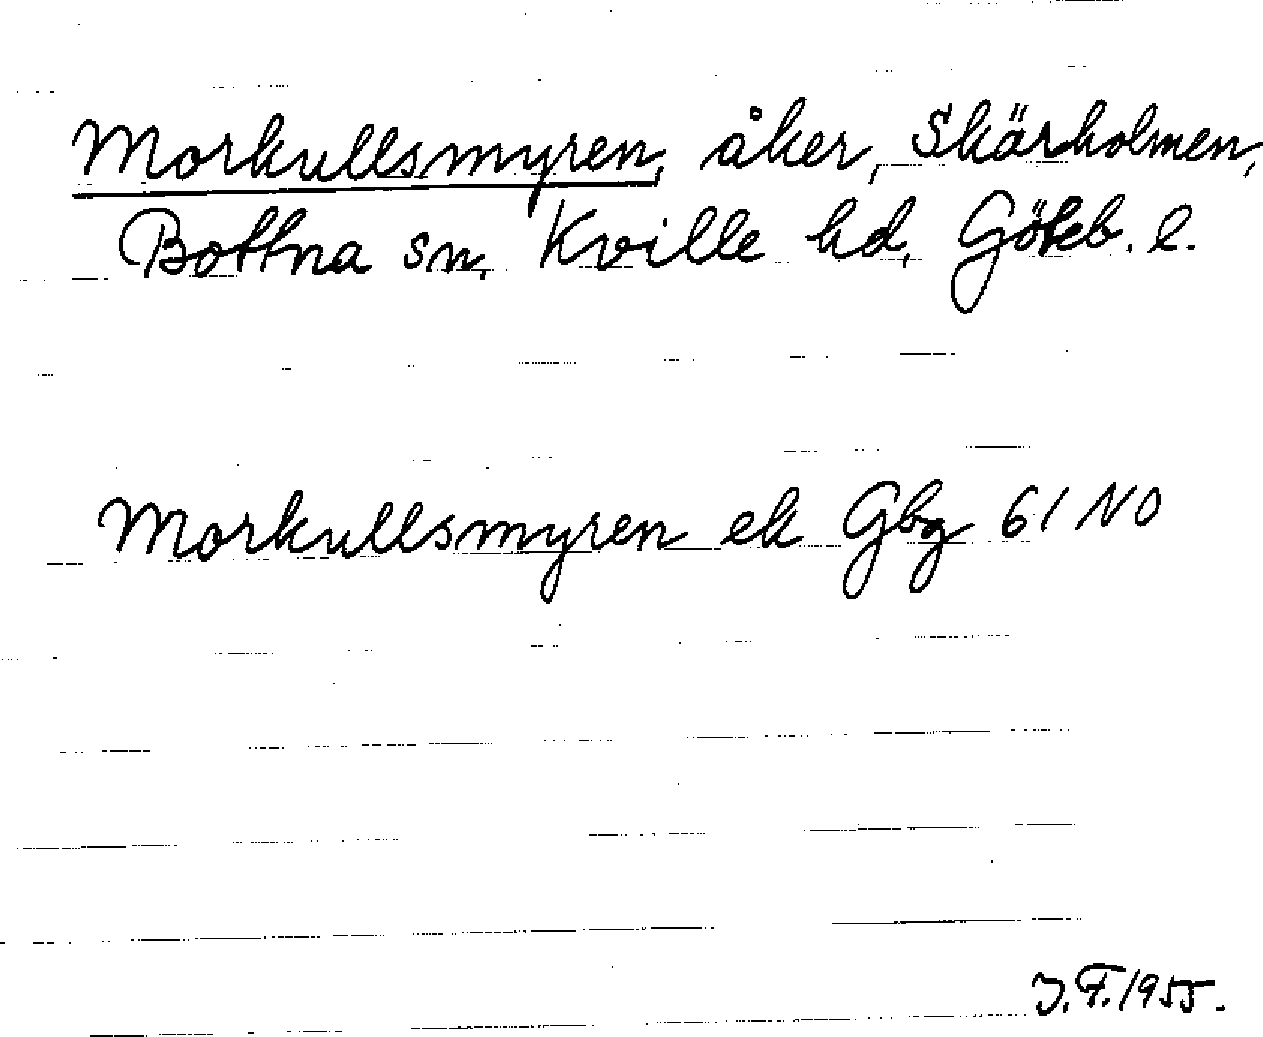 Morkullsmyren, åker, Skärholmen,
Bottna sn, Kville hd, Göteb. l.
Morkullsmyren ek Gbg 61 NO
J. F. 1955.